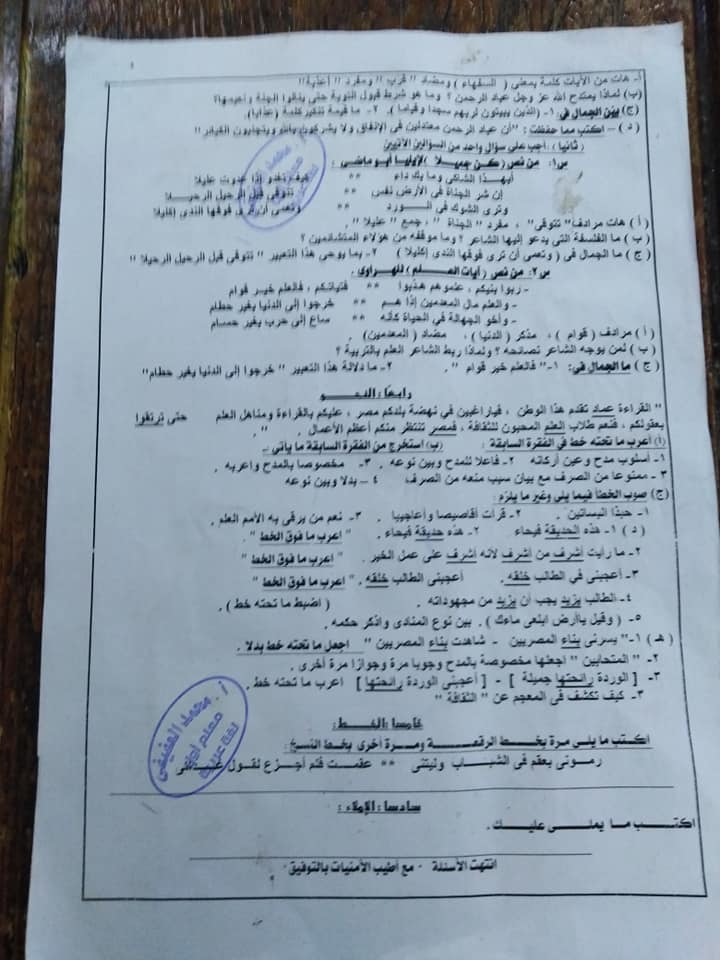 أ- هات من الآيات كلمة بمعنى ( السفهاء ) ومضاد " قرب " ومفرد " أعذبة"
(ب) لماذا يمتدح الله عز وجل عباد الرحمن ؟ وما هو شرط قبول التوبة حتى ينالوا الجنة وأجيبها؟
(ج) بين الجمال فى : ١- (الذين يبيتون لربهم سجدا وقياما ). ٢- ما قيمة تنكير كلمة (عذابا).
( د ) – اكتب مما حفظت : "أن عباد الرحمن معتدلين فى الإنفاق ولا يشركون بالله ويتجنبون الكبائر"
( ثانيا ) : أجب على سؤال واحد من السؤالين الآتيين
س١: من نص (كن جميلا ) لإيليا أبو ماضى :
أيهذا الشاكى وما بك داء ** كيف تغدو إذا غدوت عليلا
إن شر الجناة فى الأرض نفس ** تتوقى قبل الرحيل الرحيلا
وترى الشوك فى الورد ** وتعمى أن ترى فوقها الندى إكليلا
( أ ) هات مرادف" تتوقى" ، مفرد " الجناة " ، جمع " عليلا ".
( ب ) ما الفلسفة التى يدعو إليها الشاعر ؟ وما موقفه من هؤلاء المتشائمين ؟
( ج ) ما الجمال فى ( وتعمى أن ترى فوقها الندى إكليلا ) ٢- بما يوحى هذا التعبير " تتوقى قبل الرحيل الرحيلا "
س٢: من نص ( آيات العلم ) للهراوى .
- ربوا بنيكم ، علموهم هذبوا ** فتياتكم ، فالعلم خير قوام
- والعلم مال المعدمين إذا هم ** خرجوا إلى الدنيا بغير حطام
- وأخو الجهالة فى الحياة كأنه ** ساع إلى حرب بغير حسام
( أ ) مرادف ( قوام ) ، مذكر ( الدنيا ) ، مضاد ( المعدمين) .
( ب ) لمن يوجه الشاعر نصائحه ؟ ولماذا ربط الشاعر العلم بالتربية ؟
( ج ) ما الجمال فى: ١- "فالعلم خير قوام ". ٢- ما دلالة هذا التعبير " خرجوا إلى الدنيا بغير حطام"
رابعا : النحو
" القراءة عماد تقدم هذا الوطن ، فياراغبين في نهضة بلدكم مصر ، عليكم بالقراءة ومناهل العلم حتى ترتقوا
بعقولكم ، فنعم طلاب العلم المحبون للثقافة ، فمصر تنتظر منكم أعظم الأعمال . ".
(أ) أعرب ما تحته خط في الفقرة السابقة : (ب) استخرج من الفقرة السابقة ما يأتى :-
١- أسلوب مدح وعين أركانه ٢- فاعلا للمدح وبين نوعه . ٣- مخصوصا بالمدح واعربه .
٣ - ممنوعا من الصرف مع بيان سبب منعه من الصرف ٤ – بدلا وبين نوعه
(ج) صوب الخطأ فيما يلى وغير ما يلزم :
١- حبذا البساتين . ٢- قرأت أقاصيصا وأعاجيبا . ٣- نعم من يرقى به الأمم العلم .
( د ) ١- هذه الحديقة فيحاء . ٢- هذه حديقة فيحاء . " اعرب ما فوق الخط ".
٢- ما رأيت أشرف من أشرف لأنه أشرف على عمل الخير . " اعرب ما فوق الخط "
٣- أعجبنى في الطالب خلقه . أعجبنى الطالب خلقه . " اعرب ما فوق الخط "
٤- الطالب يزيد يجب أن يزيد من مجهوداته . ( اضبط ما تحته خط ) .
٥- ( وقيل ياأرض ابلعى ماءك ) . بين نوع المنادى واذكر حكمه .
( هـ ) ١- "يسرنى بناء المصريين - شاهدت بناء المصريين " اجعل ما تحته خط بدلا .
٢- "المتحابين " اجعلها مخصوصة بالمدح وجوبا مرة وجوازا مرة أخرى .
٣- [ الوردة رائحتها جميلة ] - [ أعجبنى الوردة رائحتها ] اعرب ما تحته خط .
٣- كيف تكشف فى المعجم عن "الثقافة "
خامسا : الخط :
اكتب ما يلى مرة بخط الرقعة ومرة أخرى بخط النسخ :
رمونى بعقم فى الشباب وليتنى ** عقمت فلم أجزع لقول
سادسا : الإملاء :
اكتب ما يملى عليك .
انتهت الأسئلة - مع أطيب الأمنيات بالتوفيق
أ . محمد العفيفى
معلم أول
لغة عربية